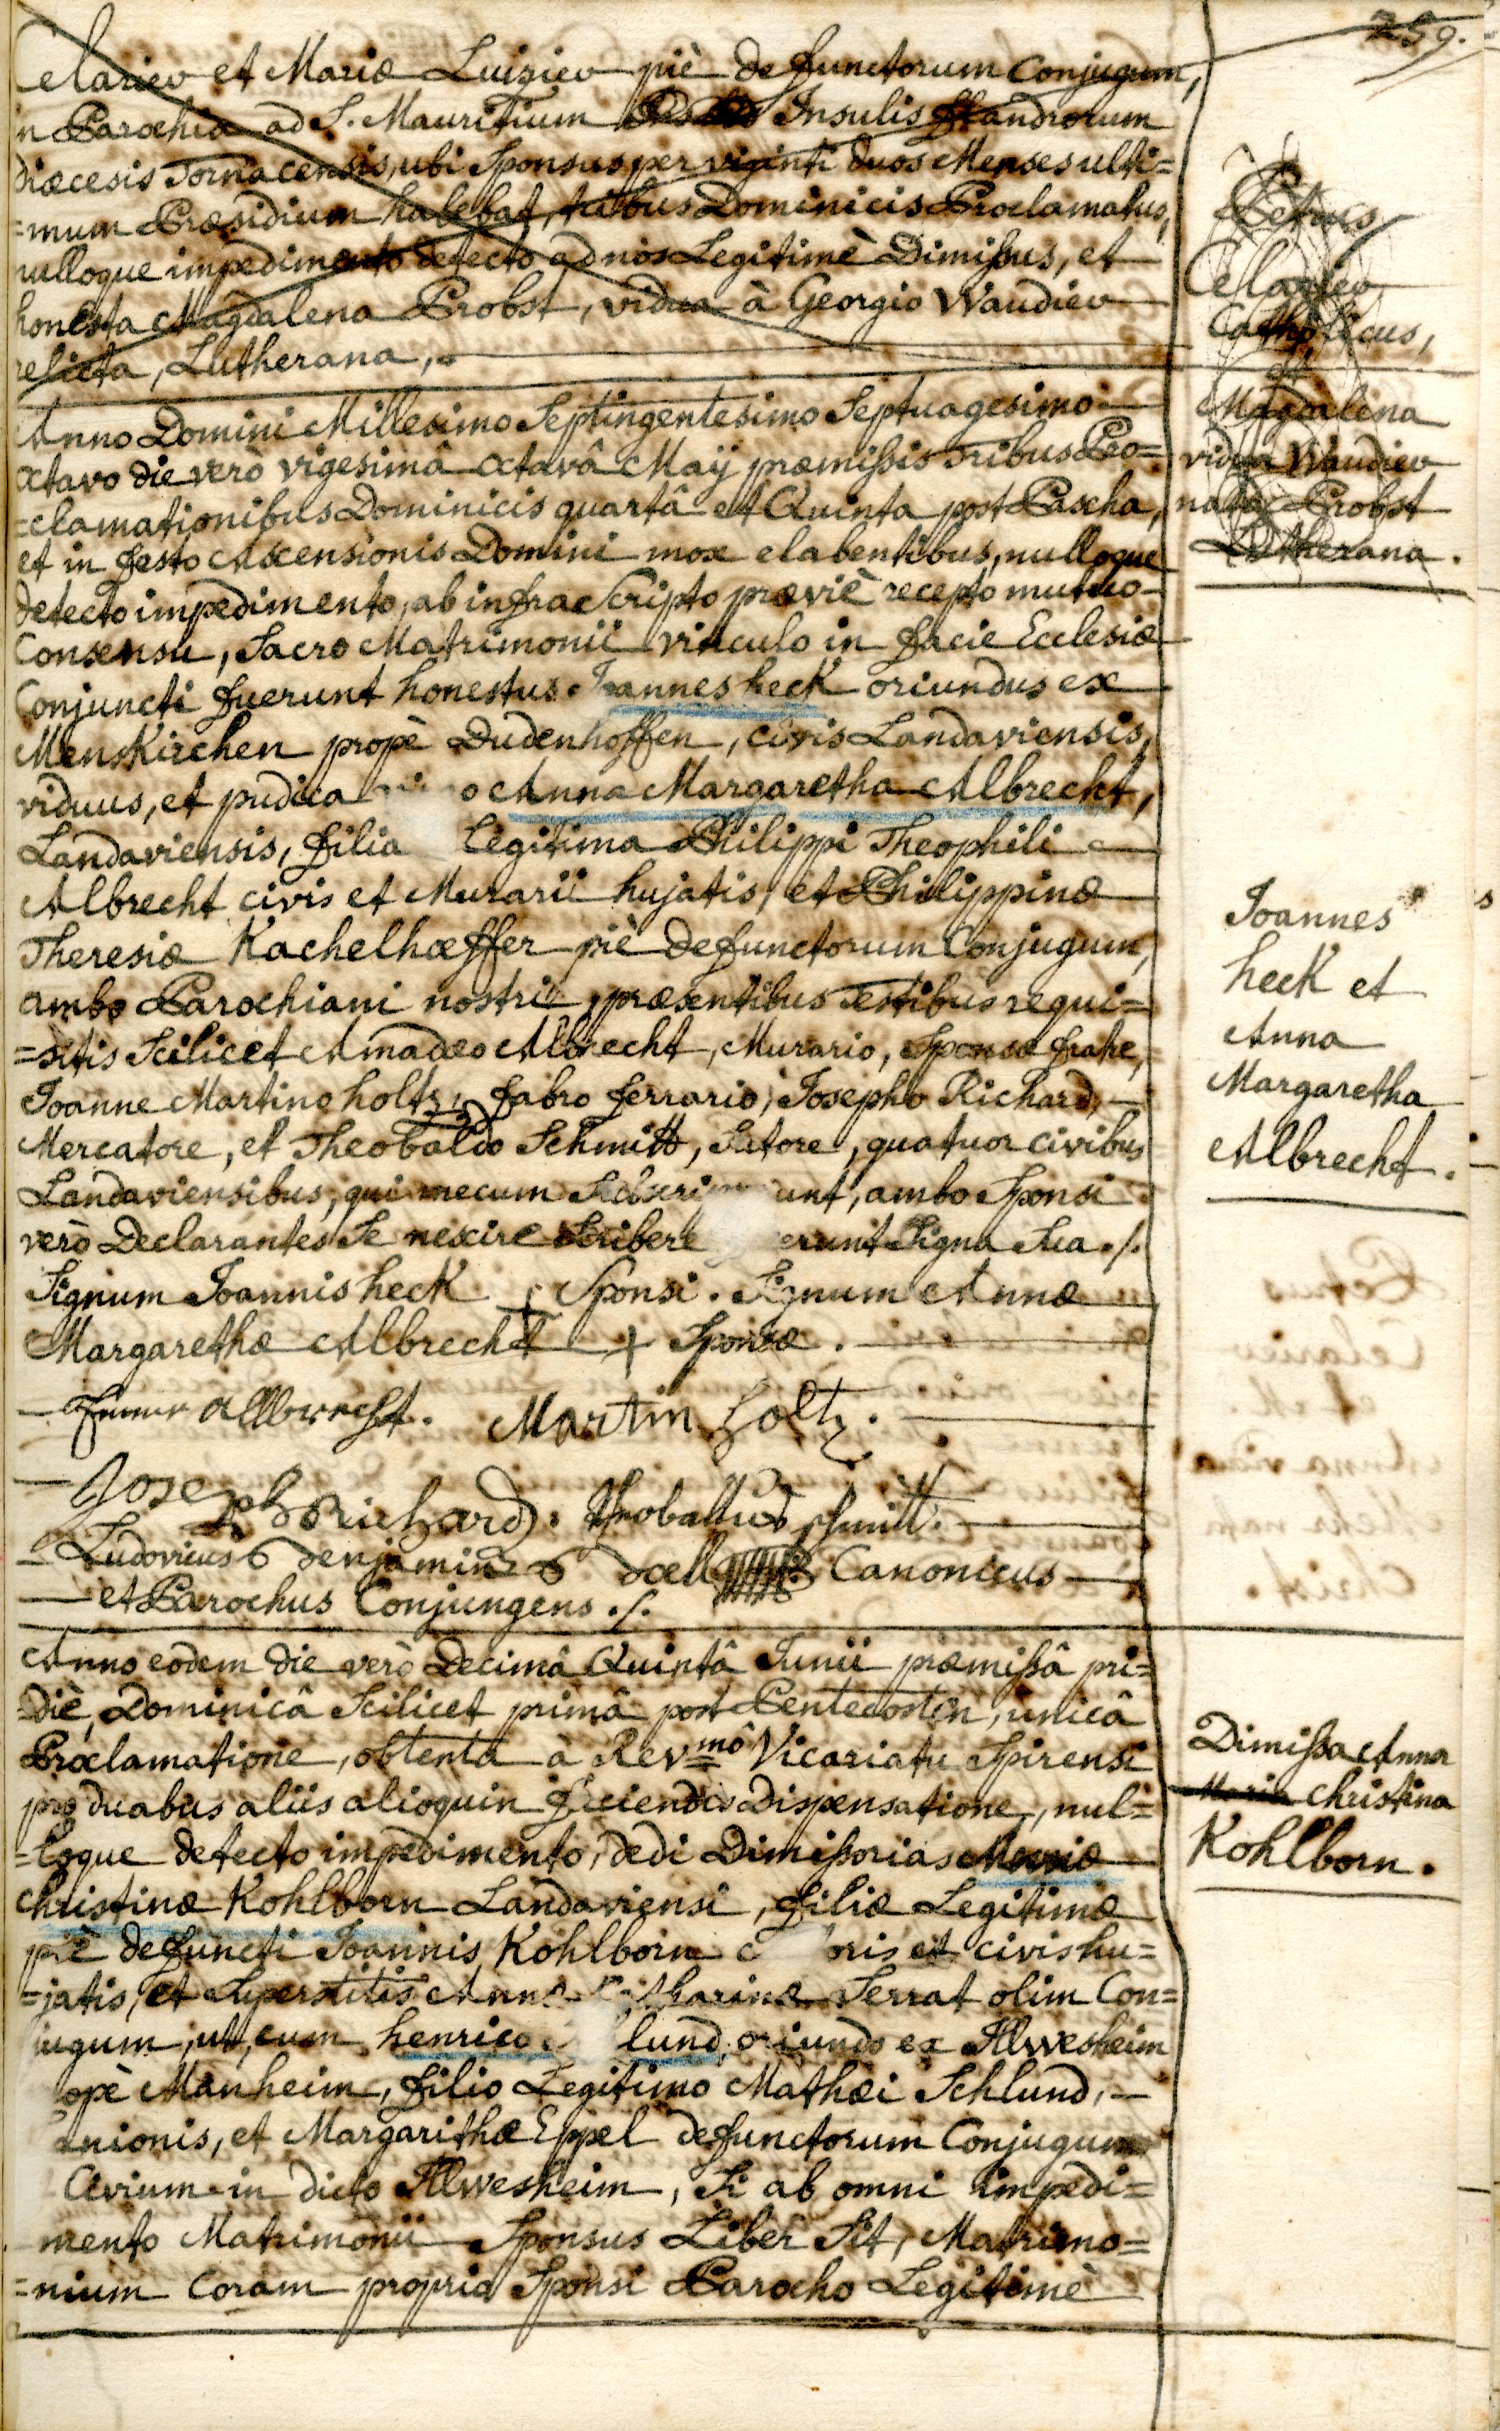 259.
Celarieu et Mariæ Luizieu piè defunctorum Conjugum,
in Parochia ad S. Mauritium Insulis flandrorum
Diœcesis Tornacensis, ubi Sponsus per viginti duos Menses ulti=
=mum Præsidium habebat, tribus Dominicis Proclamatus,
nulloque impedimento detecto ad nos Legitimè Dimissus, et
honesta Magdalena Probst, vidua à Georgio Waudieu
relicta, Lutherana,
Petrus
Celarieu
Catholicus,
et
Magdalena
vidua Waudieu
nata Probst
Lutherana.
Anno Domini Millesimo Septingentesimo Septuagesimo
octavo die verò vigesimâ octavâ Maij præmissis tribus Pro=
=clamationibus Dominicis quartâ et Quinta post Pascha,
et in festo Ascensionis Domini mox elabentibus, nulloque
detecto impedimento, ab infra Scripto præviè recepto mutuo
Consensu, Sacro Matrimonii vinculo in facie Ecclesiæ
Conjuncti fuerunt honestus Joannes heck oriundus ex
Menskirchen propè Dudenhoffen, civis Landaviensis,
viduus, et pudica Anna Margaretha Albrecht,
Landaviensis, filia Legitima Philippi Theophili
Albrecht civis et Murarii hujatis, et Philippinæ
Theresiæ Kachelhœffer piè defunctorum Conjugum,
ambo Parochiani nostri, præsentibus Testibus requi=
=sitis Scilicet Amadæo Albrecht, Murario, Sponsæ fratre,
Joanne Martino holtz, fabro ferrario, Josepho Richard,
Mercatore, et Theobaldo Schmitt, Sutore, quatuor civibus
Landaviensibus, qui mecum unt, ambo Sponsi
verò Declarantes Se nescire Scribere erunt Signa Sua ./.
Signum Joannis heck + Sponsi. Signum Annæ
Margarethæ Albrecht + Sponsæ.
Allbrecht. Martin holtz.
Joseph Richard. Theobalttus schmitt.
Ludovicus Benjamin Canonicus
et Parochus Conjungens ./.
Joannes
heck et
Anna
Margaretha
Albrecht.
Anno eodem die verò Decimâ Quintâ Junii præmissâ pri=
=diè, Dominicâ Scilicet primâ post Pentecosten, unicâ
Proclamatione, obtentâ à Rev.mô Vicariatu Spirensi
pro duabus aliis alioquin faciendis Dispensatione, nul=
=loque detecto impedimento, dedi Dimissorias Mariæ
Christinæ Kohlborn Landaviensi, filiæ Legitimæ
piè defuncti Joannis Kohlborn oris et civis hu=
=jatis, et Superstitis Annæ Catharinæ Serrat olim Con=
jugum, ut, cum henrico lund, oriundo ex Ilwesheim
opè Manheim, filio Legitimo Mathæi Schlund,
nionis, et Margarithæ Eppel defunctorum Conjugum
Civium in dicto Ilwesheim, Si ab omni impedi=
mento Matrimonii Sponsus Liber Sit, Matrimo=
=nium Coram proprio Sponsi Parocho Legitimè
Dimissa Anna
Maria Christina
Kohlborn.